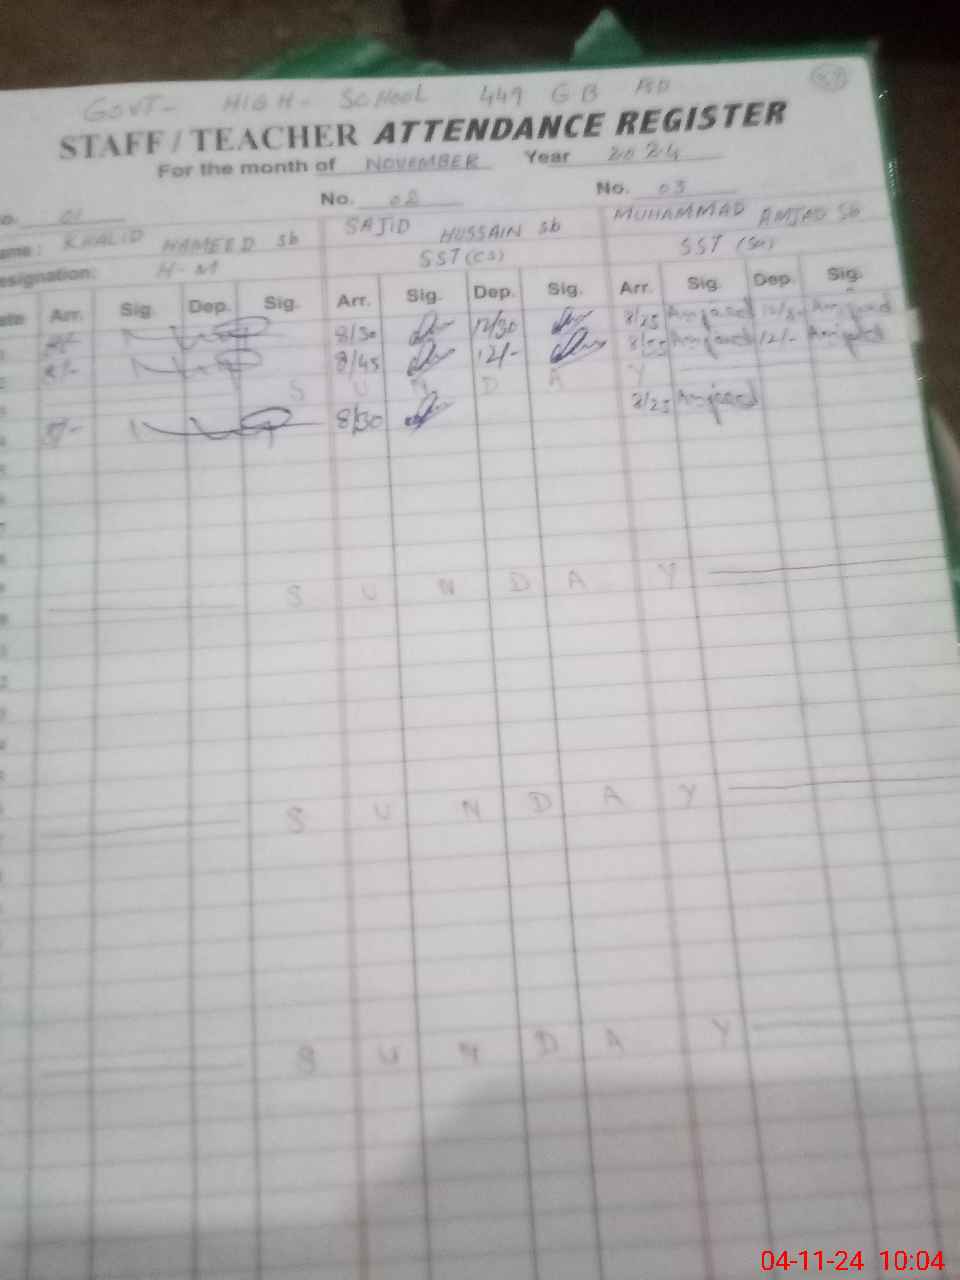 GOVT- HIGH- SCHOOL 449 GB FSD
STAFF / TEACHER ATTENDANCE REGISTER
For the month of NOVEMBER Year 2024
No. 01 No. 02 No. 03
Name: KHALID HAMEED Sb SAJID HUSSAIN Sb MUHAMMAD AMJAD Sb
Designation: H-M SST (CS) SST (Sc)
Date Arr. Sig. Dep. Sig. Arr. Sig. Dep. Sig. Arr. Sig. Dep. Sig.
8/30 12/30 8/25 Amjad Amjad
8/45 12/- Amjad 12/- Amjad
S U N D A Y
8/30 8/25 Amjad
S U N D A Y
S U N D A Y
S U N D A Y
04-11-24 10:04